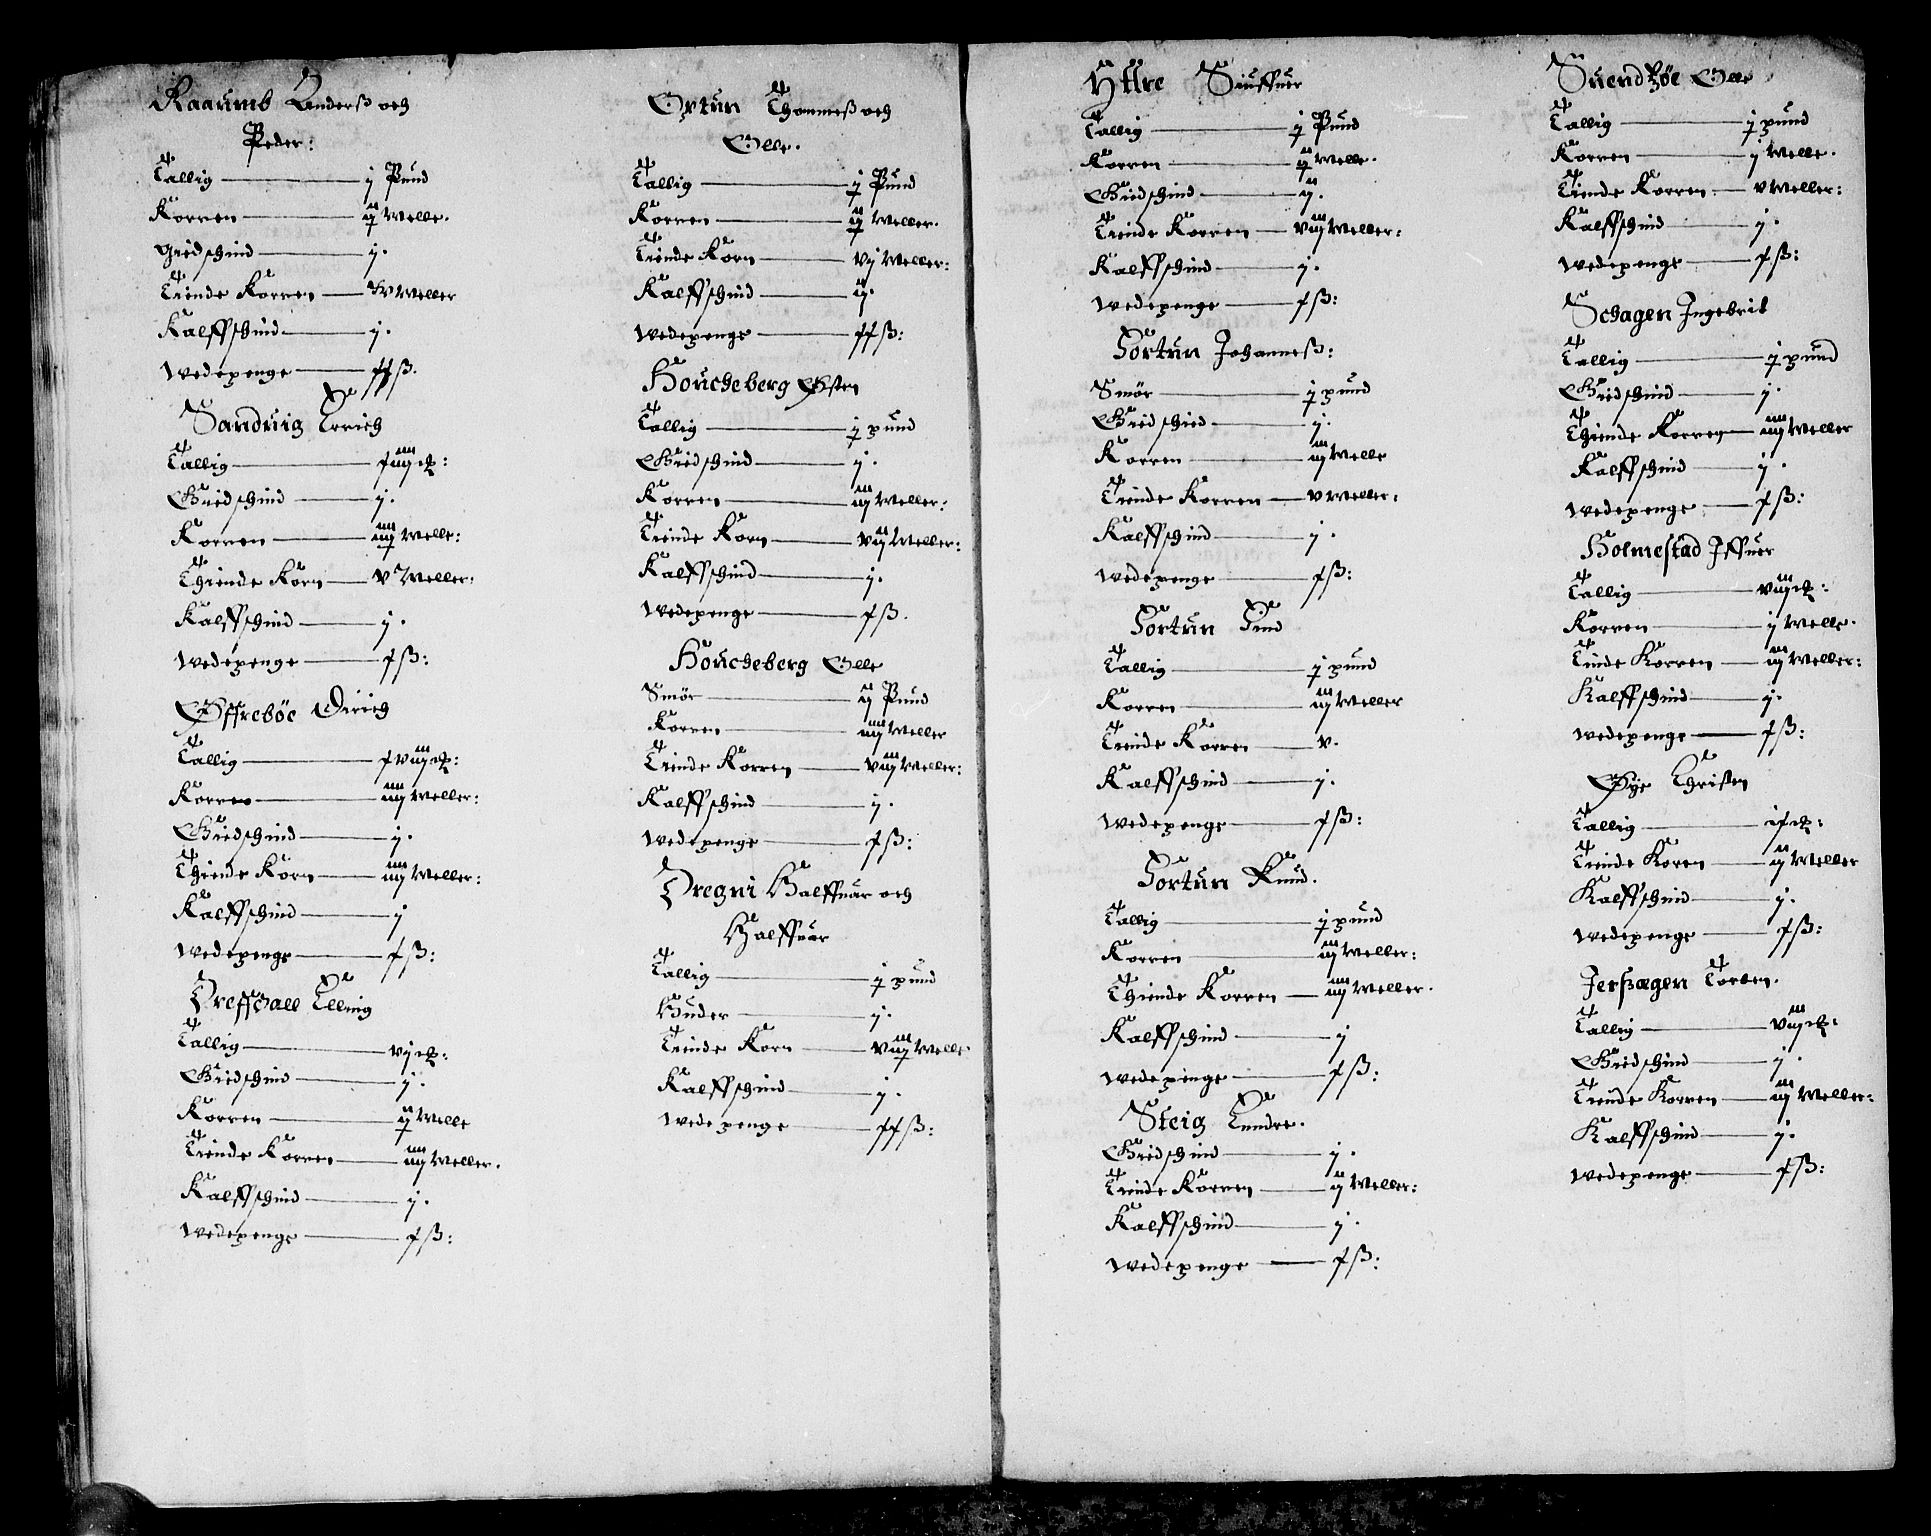 Raaumb Anderß och
Peder:
Tallig — j Pund
Korren — ij Welle.
Giedschind — j.
Tiende Korren — xv Weller
Kalffschind — j.
Wedepenge — ffß.
Sanduig Erich
Tallig — fiiij ꝑ:
Giedschind — j.
Korren — iiij Welle:
Thiende Korn — v Weller:
Kalffschind — j.
Wedepenge — fß:
Øffrebøe Dirich
Tallig — fviij ꝑ:
Korren — iiij Weller:
Giedschind — j.
Thiende Korn — iiij Weller:
Kalffschind — j
Wedepenge — fß:
Dreffdall Elling
Tallig — vj ꝑ:
Giedschind — j.
Korren — ij Welle
Tiende Korren — iiij Weller.
Kalffschind — j.
Wedepenge — fß:
Ortun Thommeß och
Olle.
Tallig — j Pund
Korren — ij Weller.
Tiende Korn — vj Weller:
Kalffschind — ij.
Wedepenge — ffß:
Houcheberg Østen
Tallig — j pund
Giedschind — j.
Korren — iij Weller:
Tiende Korn — vij Weller:
Kalffschind — j.
Wedepenge — fß.
Houcheberg Olle
Smør — ij Pund
Korren — iiij Weller
Tiende Korren — viij Weller:
Kalffschind — j.
Wedepenge — fß:
Dregni Halffuar och
Halffuar
Tallig — j pund
Huder — j.
Tiende Korn — viij Welle
Kalffschind — j.
Wedepenge — ffß:
Yttre Siuffuer
Tallig — j Pund
Korren — ij Welle.
Giedschind — ij.
Tiende Korren — viij Weller:
Kalffschind — j.
Wedepenge — fß:
Fortun Johanneß:
Smør — j pund
Giedschied — j.
Korren — iij Welle
Tiende Korren — v Weller:
Kalffschind — j.
Wedepenge — fß:
Fortun Find
Tallig — j pund
Korren — iij Weller
Tiende Korren — v.
Kalffschind — j.
Wedepenge — fß:
Fortun Knud.
Tallig — j pund
Korren — iij Weller:
Thiende Korren — iiij Weller.
Kalffschind — j
Wedepenge — fß:
Steig Endre.
Giedschind — j.
Tiende Korren — ij Weller:
Kalffschind — j.
Wedepenge — fß:
Suendtzøe Olle
Tallig — j pund
Korren — j Welle.
Tiende Korren — v Weller:
Kalffschind — j.
Wedepenge — fß:
Schagen Ingebrit
Tallig — j pund
Giedschind — j.
Thiende Korren — iiij Weller
Kalffschind — j.
Wedepenge — fß:
Holmestad Iffuer
Tallig — viij ꝑ:
Korren — j Welle.
Tinde Korren — iij Weller:
Kalffschind — j.
Wedepenge — fß:
Øye Christen
Tallig — if ꝑ:
Tiende Koren — ij Weller
Kalffschind — j.
Wedepenge — fß:
Jerßagen Torben.
Tallig — viij ꝑ:
Giedschind — j.
Tiende Korren — iij Weller:
Kalffschind — j.
Wedepenge — fß: